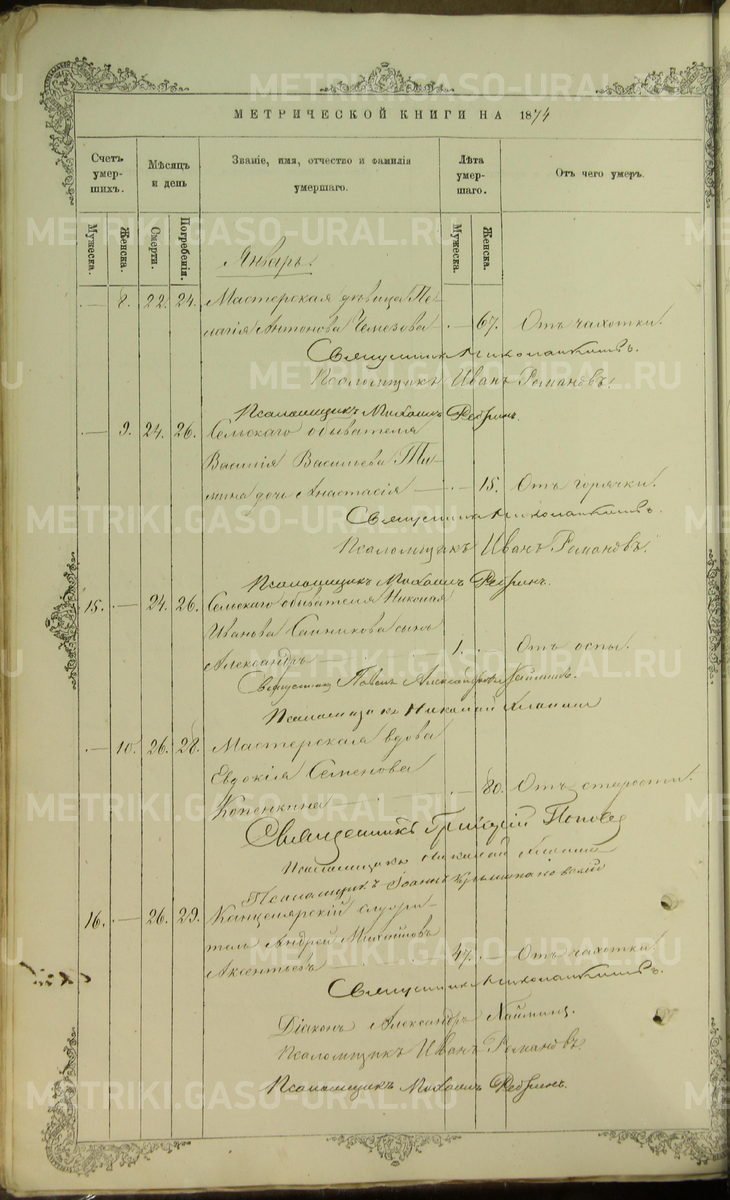 МЕТРИЧЕСКОЙ КНИГИ НА 1874
Счетъ умер- шихъ.
Мѣсяцъ и день
Званіе, имя, отчество и фамилія умершаго.
Лѣта умер- шаго.
Отъ чего умеръ.
Мужеска.
Женска.
Смерти.
Погребенія.
Мужеска.
Женска.
Январь.
8. 22. 24. Мастерская дѣвица Пе-
лагія Антонова Чемезова 67. Отъ чахотки.
Священникъ
Псаломщикъ Иванъ Романовъ.
Псаломщикъ Михаилъ
9. 24. 26. Сельскаго обывателя
Василія Васильева Ти-
мина дочь Анастасія 15. Отъ горячки.
Священникъ
Псаломщикъ Иванъ Романовъ.
Псаломщикъ Михаилъ
15. 24. 26. Сельскаго обывателя Николая
Иванова Санникова сынъ
Александръ 1. Отъ оспы.
Священникъ Павелъ
Псаломщикъ Николай
10. 26. 28. Мастерская вдова
Евдокія Семенова
Копенкина 80. Отъ старости.
Священникъ Григорій Поповъ
Псаломщикъ
Псаломщикъ Іоаннъ
16. 26. 29. Канцелярскій служи-
тель Андрей Михайловъ
Аксентьевъ 47. Отъ чахотки.
Священникъ
Діаконъ Александръ
Псаломщикъ Иванъ Романовъ.
Псаломщикъ Михаилъ
METRIKI.GASO-URAL.RU